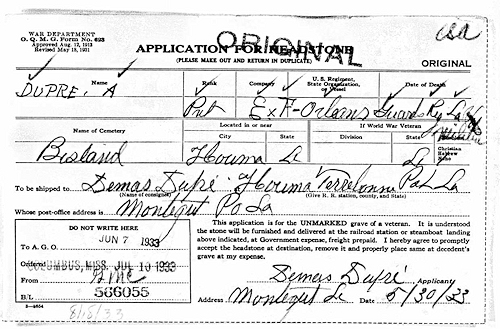 WAR DEPARTMENT
O. Q. M. G. Form No. 623
Approved Aug. 12, 1913
Revised May 18, 1931
csa
APPLICATION FOR HEADSTONE
ORIGINAL
(PLEASE MAKE OUT AND RETURN IN DUPLICATE)
ORIGINAL
Name
Rank
Company
U. S. Regiment, State Organization, or Vessel
Date of Death
DUPRE, A
Pvt
E x F - Orleans Guards Reg La
Militia
Name of Cemetery
Located in or near
City
State
If World War Veteran
Division
State
Christian
Hebrew
None
Bisland
Houma
La
La
To be shipped to Demas Dupré at Houma Terrebonne Par La
(Name of consignee)
(Give R. R. station, county, and State)
Whose post-office address is Montegut Po La
DO NOT WRITE HERE
To A. G. O. JUN 7 1933
Ordered COLUMBUS, MISS. JUL 10 1933
From GMC
B/L 566055
3-2604
8/15/33
This application is for the UNMARKED grave of a veteran. It is understood
the stone will be furnished and delivered at the railroad station or steamboat landing
above indicated, at Government expense, freight prepaid. I hereby agree to promptly
accept the headstone at destination, remove it and properly place same at decedent's
grave at my expense.
Demas Dupré Applicant
Address Montegut La Date 5/30/33